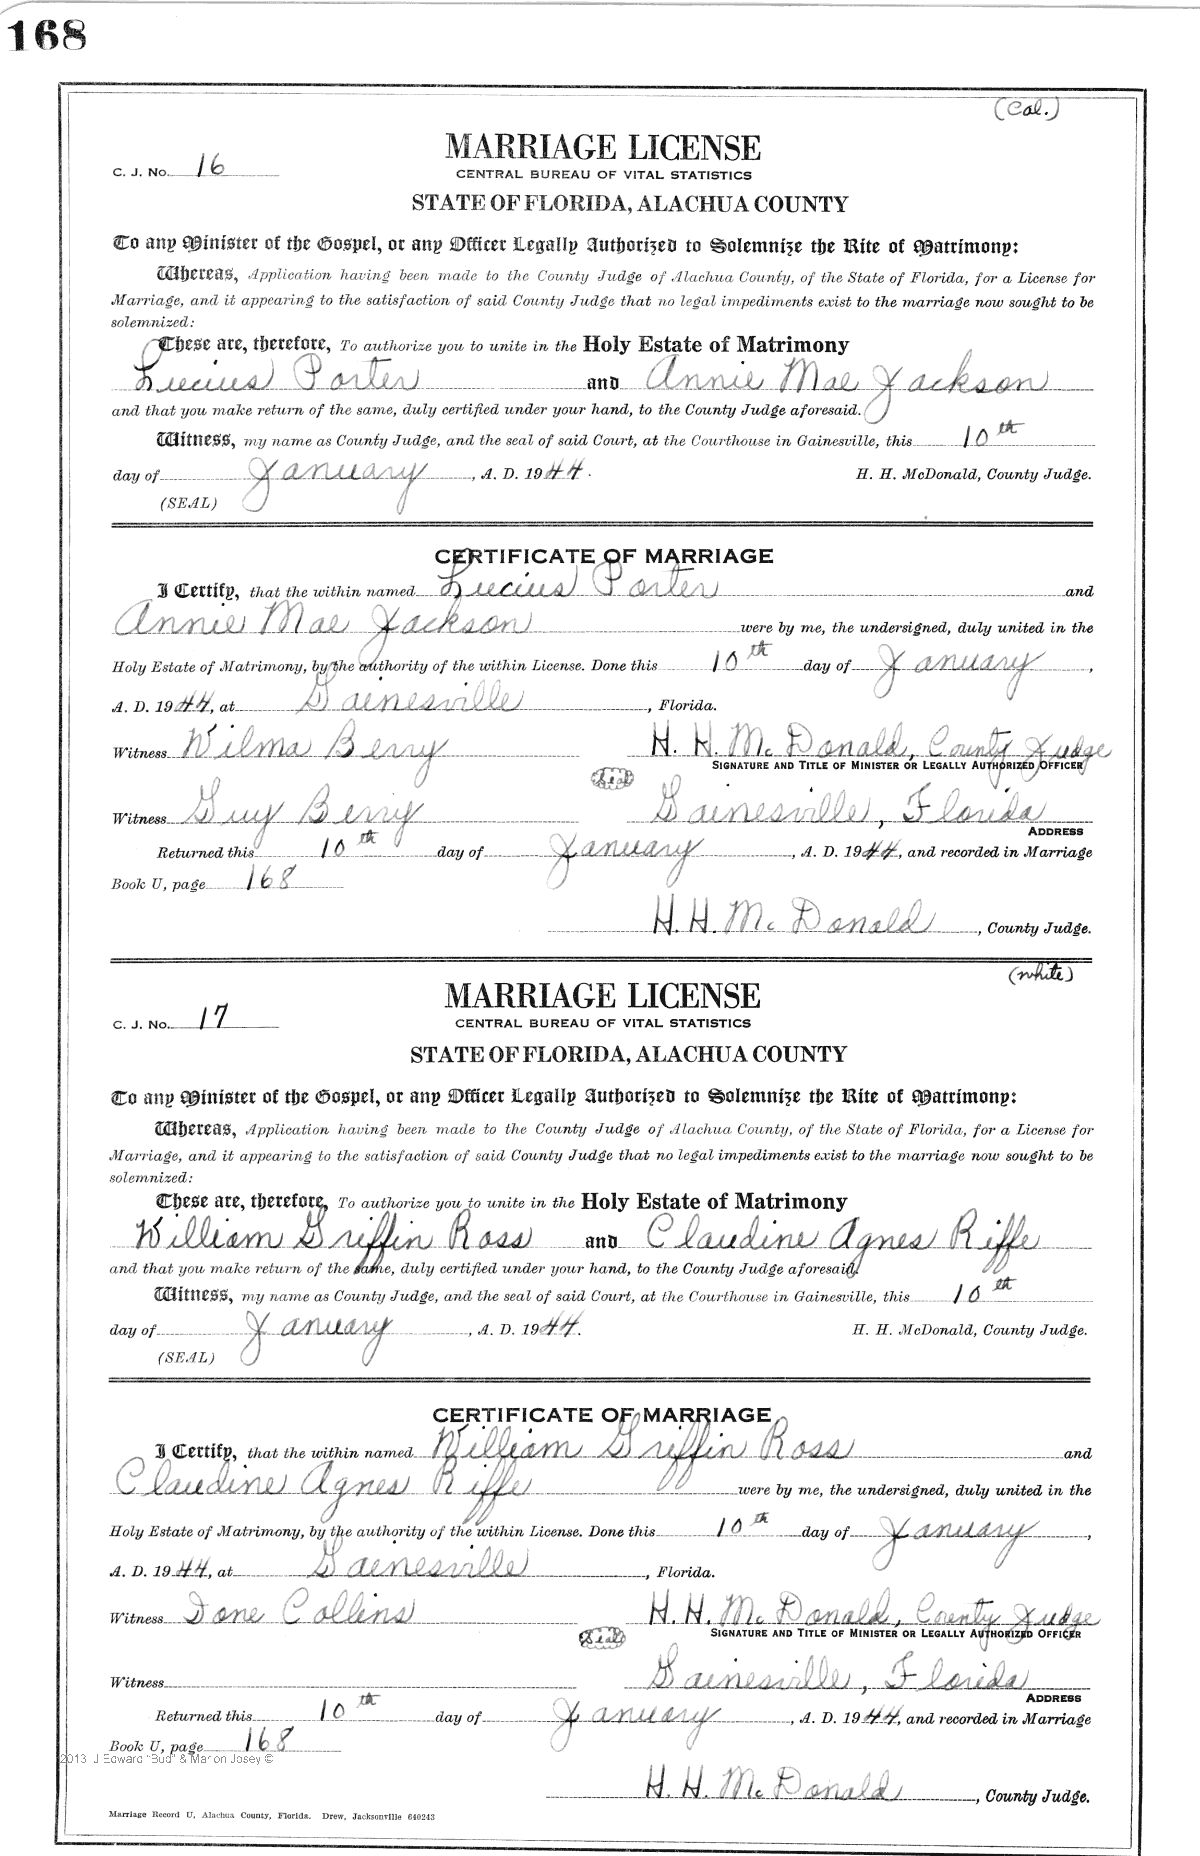 168
(Col.)
MARRIAGE LICENSE
C. J. No. 16
CENTRAL BUREAU OF VITAL STATISTICS
STATE OF FLORIDA, ALACHUA COUNTY
To any Minister of the Gospel, or any Officer Legally Authorized to Solemnize the Rite of Matrimony:
Whereas, Application having been made to the County Judge of Alachua County, of the State of Florida, for a License for
Marriage, and it appearing to the satisfaction of said County Judge that no legal impediments exist to the marriage now sought to be
solemnized:
These are, therefore, To authorize you to unite in the Holy Estate of Matrimony
Lucius Porter and Annie Mae Jackson
and that you make return of the same, duly certified under your hand, to the County Judge aforesaid.
Witness, my name as County Judge, and the seal of said Court, at the Courthouse in Gainesville, this 10th
day of January, A. D. 1944. H. H. McDonald, County Judge.
(SEAL)
CERTIFICATE OF MARRIAGE
I Certify, that the within named Lucius Porter and
Annie Mae Jackson were by me, the undersigned, duly united in the
Holy Estate of Matrimony, by the authority of the within License. Done this 10th day of January,
A. D. 1944, at Gainesville, Florida.
Witness Wilma Berry H. H. McDonald, County Judge
SIGNATURE AND TITLE OF MINISTER OR LEGALLY AUTHORIZED OFFICER
(Seal)
Witness Guy Berry Gainesville, Florida
ADDRESS
Returned this 10th day of January, A. D. 1944, and recorded in Marriage
Book U, page 168
H. H. McDonald, County Judge.
(white)
MARRIAGE LICENSE
C. J. No. 17
CENTRAL BUREAU OF VITAL STATISTICS
STATE OF FLORIDA, ALACHUA COUNTY
To any Minister of the Gospel, or any Officer Legally Authorized to Solemnize the Rite of Matrimony:
Whereas, Application having been made to the County Judge of Alachua County, of the State of Florida, for a License for
Marriage, and it appearing to the satisfaction of said County Judge that no legal impediments exist to the marriage now sought to be
solemnized:
These are, therefore, To authorize you to unite in the Holy Estate of Matrimony
William Griffin Ross and Claudine Agnes Riffe
and that you make return of the same, duly certified under your hand, to the County Judge aforesaid.
Witness, my name as County Judge, and the seal of said Court, at the Courthouse in Gainesville, this 10th
day of January, A. D. 1944. H. H. McDonald, County Judge.
(SEAL)
CERTIFICATE OF MARRIAGE
I Certify, that the within named William Griffin Ross and
Claudine Agnes Riffe were by me, the undersigned, duly united in the
Holy Estate of Matrimony, by the authority of the within License. Done this 10th day of January,
A. D. 1944, at Gainesville, Florida.
Witness Ione Collins H. H. McDonald, County Judge
SIGNATURE AND TITLE OF MINISTER OR LEGALLY AUTHORIZED OFFICER
(Seal)
Witness Gainesville, Florida
ADDRESS
Returned this 10th day of January, A. D. 1944, and recorded in Marriage
Book U, page 168
2013 J Edward "Bud" & Marion Josey ©
H. H. McDonald, County Judge.
Marriage Record U, Alachua County, Florida. Drew, Jacksonville 640243